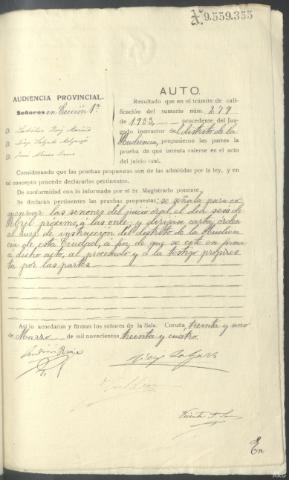 Nº 9.559.355
AUDIENCIA PROVINCIAL.
Señores en Sección 1ª
D.
D.
D.
AUTO.
Resultado que en el trámite de cali-
ficación del sumario núm. 279
de 1933, procedente del Juz-
gado instructor del distrito de la
Audiencia, propusieron las partes
la prueba de que intenta valerse en el acto
del juicio oral.
Considerando que las pruebas propuestas son de las admitidas por la ley, y en
tal concepto procede declararlas pertinentes.
De conformidad con lo informado por el Sr. Magistrado ponente,
Se declaran pertinentes las pruebas propuestas; se señala para co-
menzar las sesiones del juicio oral el día seis de
Abril próximo, a las once, y diríjase carta orden
al Juez de instrucción del distrito de la Audien-
cia de esta Ciudad, a fin de que se cite en forma
a dicho acto, al procesado y a testigos
por las partes
Así lo acordaron y firman los señores de la Sala. Coruña treinta y uno
de Marzo de mil novecientos treinta y cuatro.
En